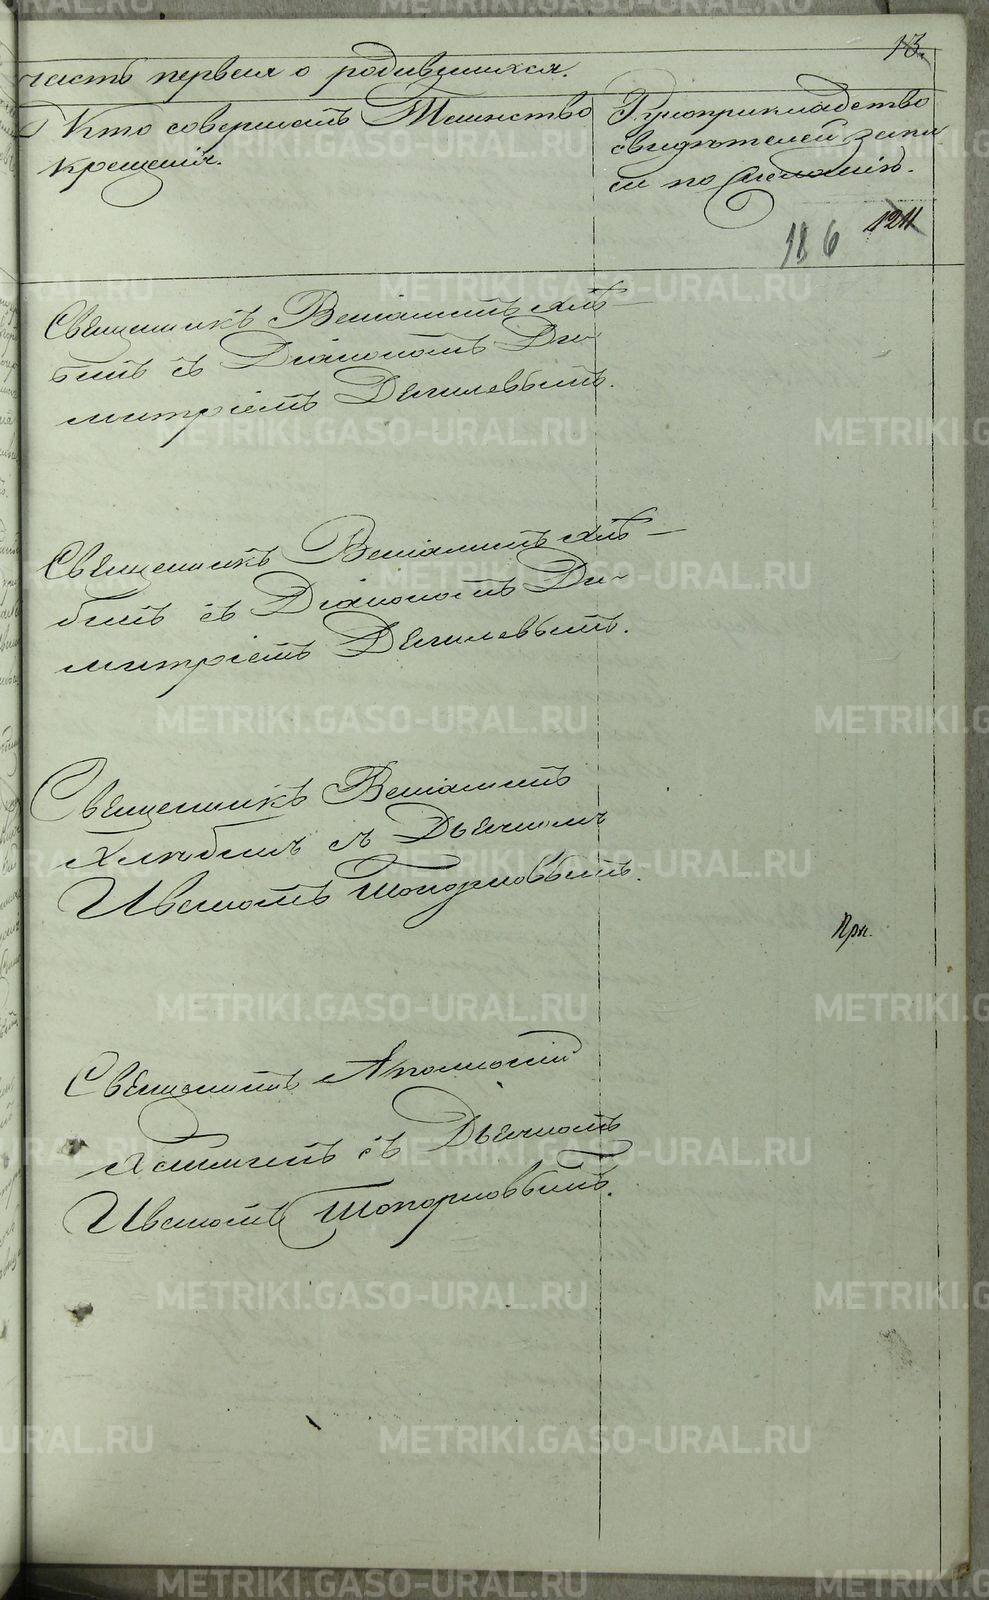 13.
часть первая о родившихся.
Кто совершалъ Таинство
крещенія.
Рукоприкладство
свидѣтелей запи
си по желанію.
186
1211
Священникъ Веніаминъ Хлѣ-
бинъ съ Діакономъ Ди-
митріемъ Дягилевымъ.
Священникъ Веніаминъ Хлѣ-
бинъ съ Діакономъ Ди-
митріемъ Дягилевымъ.
Священникъ Веніаминъ
Хлѣбинъ съ Дьячкомъ
Иваномъ Топорковымъ.
При.
Священникъ Аполлосій
съ Дьячкомъ
Иваномъ Топорковымъ.
METRIKI.GASO-URAL.RU